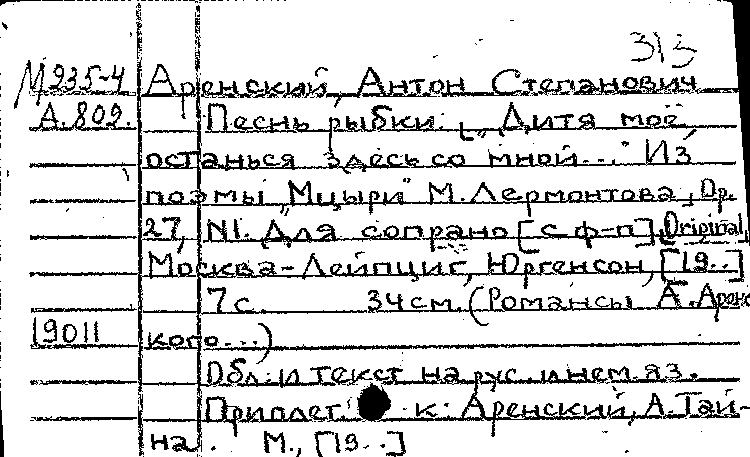 313
М935-4 Аренский, Антон Степанович
А.809. Песнь рыбки. „Дитя моё
останься здесь со мной..." Из
поэмы „Мцыри" М. Лермонтова, Ор.
27, N1. Для сопрано [с ф-п], Original,
Москва-Лейпциг, Юргенсон, [19..]
7 с. 34 см. (Романсы А. Аренс
19011 кого...)
Обл. и текст на рус. и нем. яз.
Приплет. к: Аренский, А. Тай-
на. М., [19..]